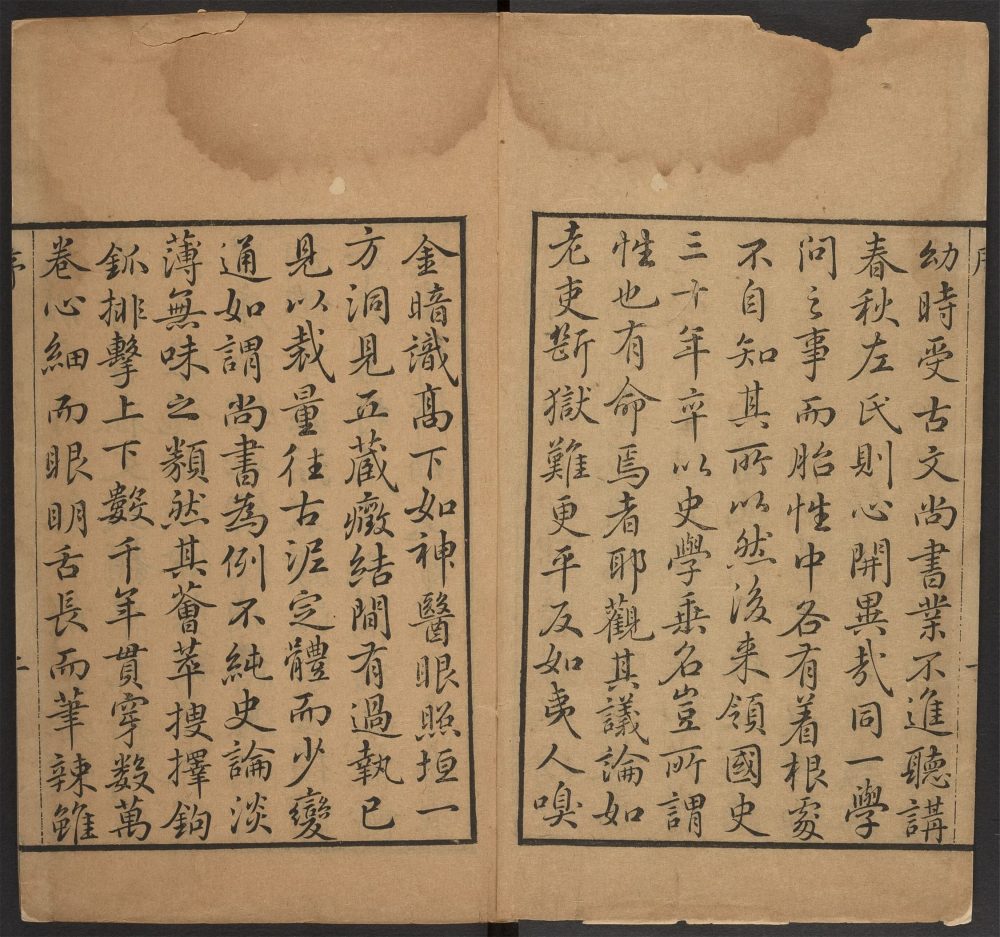 幼時受古文尚書業不進聽講
春秋左氏則心開異哉同一學
問之事而胎性中各有着根處
不自知其所以然後来領國史
三十年卒以史學乗名豈所謂
性也有命焉者耶觀其議論如
老吏斷獄難更平反如夷人嗅
金暗識髙下如神醫眼照垣一
方洞見五藏癥結間有過執已
見以裁量徃古泥定體而少變
通如謂尚書為例不純史論淡
薄無味之類然其薈萃搜擇鉤
釽排擊上下數千年貫穿数萬
卷心細而眼明舌長而筆辣雖